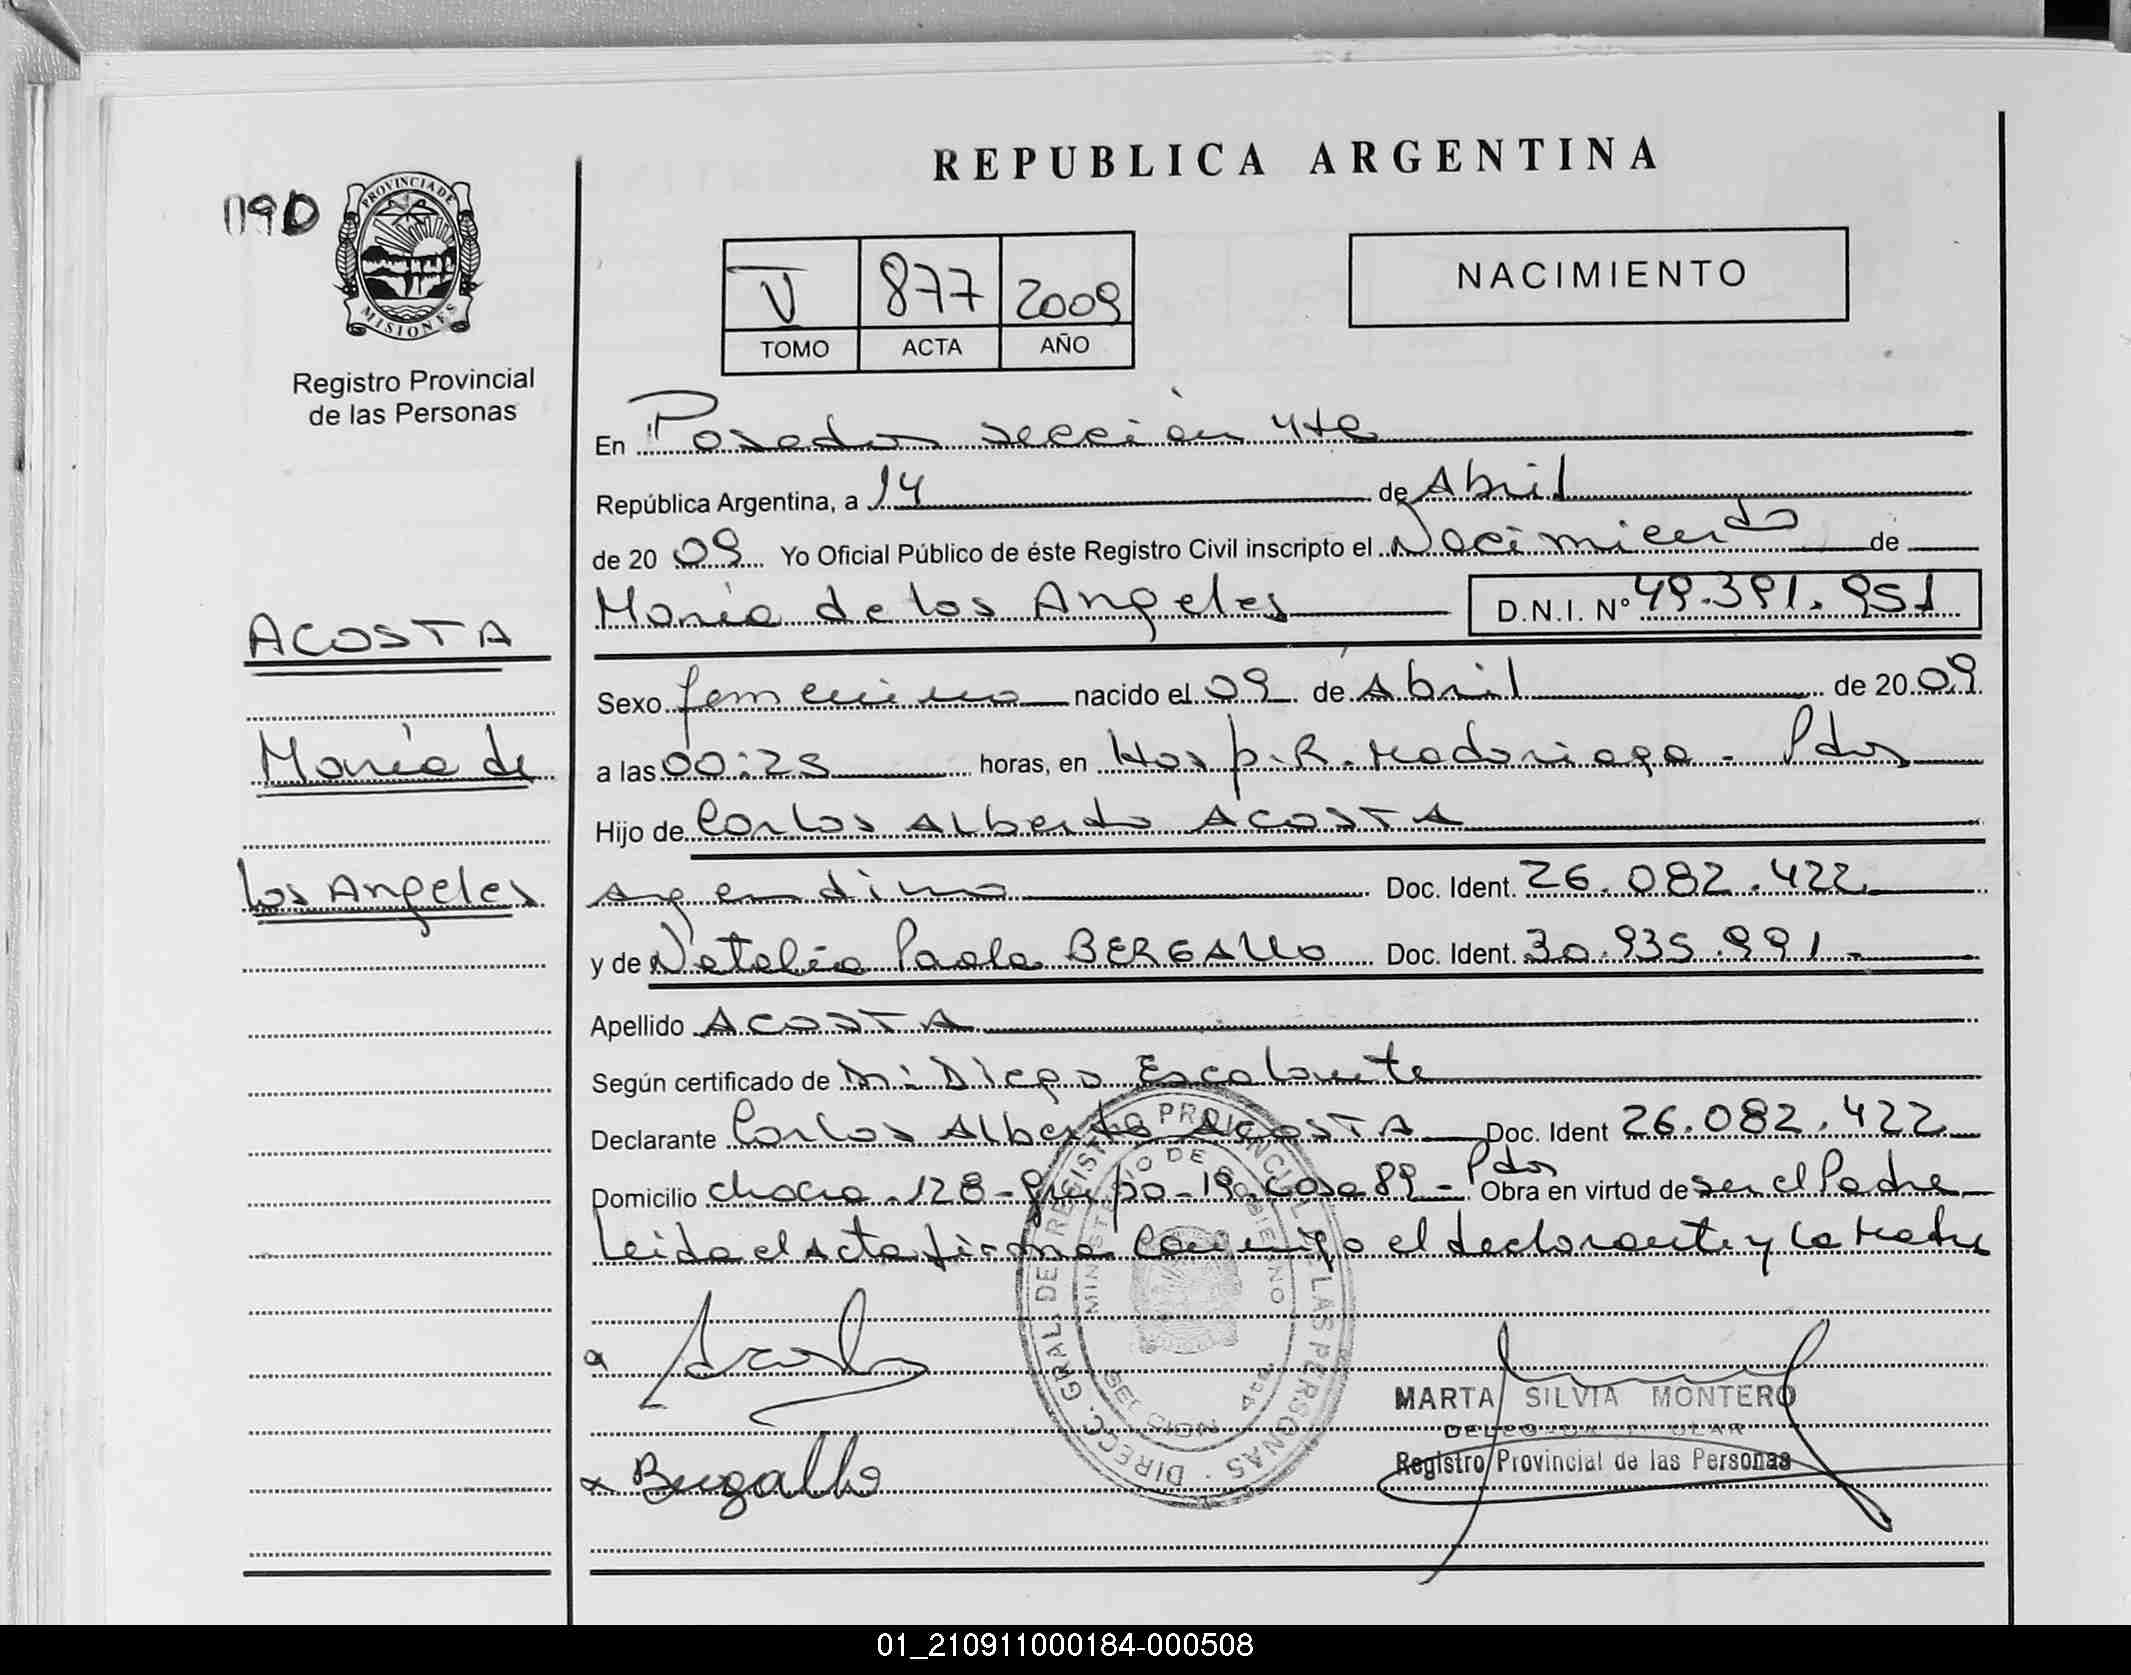 REPUBLICA ARGENTINA
PROVINCIA DE
MISIONES
Registro Provincial
de las Personas
V 877 2009
TOMO ACTA AÑO
NACIMIENTO
En Posadas sección 4ta
República Argentina, a 14 de Abril
de 2009 Yo Oficial Público de éste Registro Civil inscripto el Nacimiento de
María de los Angeles D.N.I. Nº 49.391.951
ACOSTA
María de
los Angeles
Sexo femenino nacido el 09 de Abril de 2009
a las 00:25 horas, en Hosp. R. Madariaga - Pdas
Hijo de Carlos Alberto ACOSTA
argentino Doc. Ident. 26.082.422
y de Natalia Paola BERGALLO Doc. Ident. 30.935.991.-
Apellido ACOSTA
Según certificado de Dr. Diego Escalante
Declarante Carlos Alberto ACOSTA Doc. Ident 26.082.422
Domicilio chacra. 128 - grupo - 19. casa 89 - Pdas Obra en virtud de ser el Padre
Leida el acta firma conmigo el declarante y la Madre
DIRECC. GRAL. DE REGISTRO PROVINCIAL DE LAS PERSONAS
MINISTERIO DE GOBIERNO
Acosta
MARTA SILVIA MONTERO
Registro Provincial de las Personas
x Bergallo
01_210911000184-000508